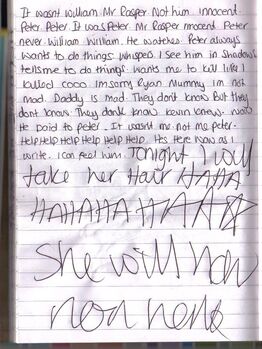 It wasnt william Mr Rasper Not him innocent.
Peter Peter It was Peter Mr Rasper innocent Peter
never william william. He watches. Peter always
wants to do things whispers I see him in Shadows
tells me to do things. wants me to kill like I
killed coco im sorry Ryan Mummy im not
mad. Daddy is mad. They don't know But they
dont know. They dank know kevin knew. 
He paid to peter. It wasnt me not me peter.
Help Help Help Help Help Help. Hes Here Now as I
write. I can feel him. Tonight I will
take her Hair HAHA.
HAHAHAHAHA
She will